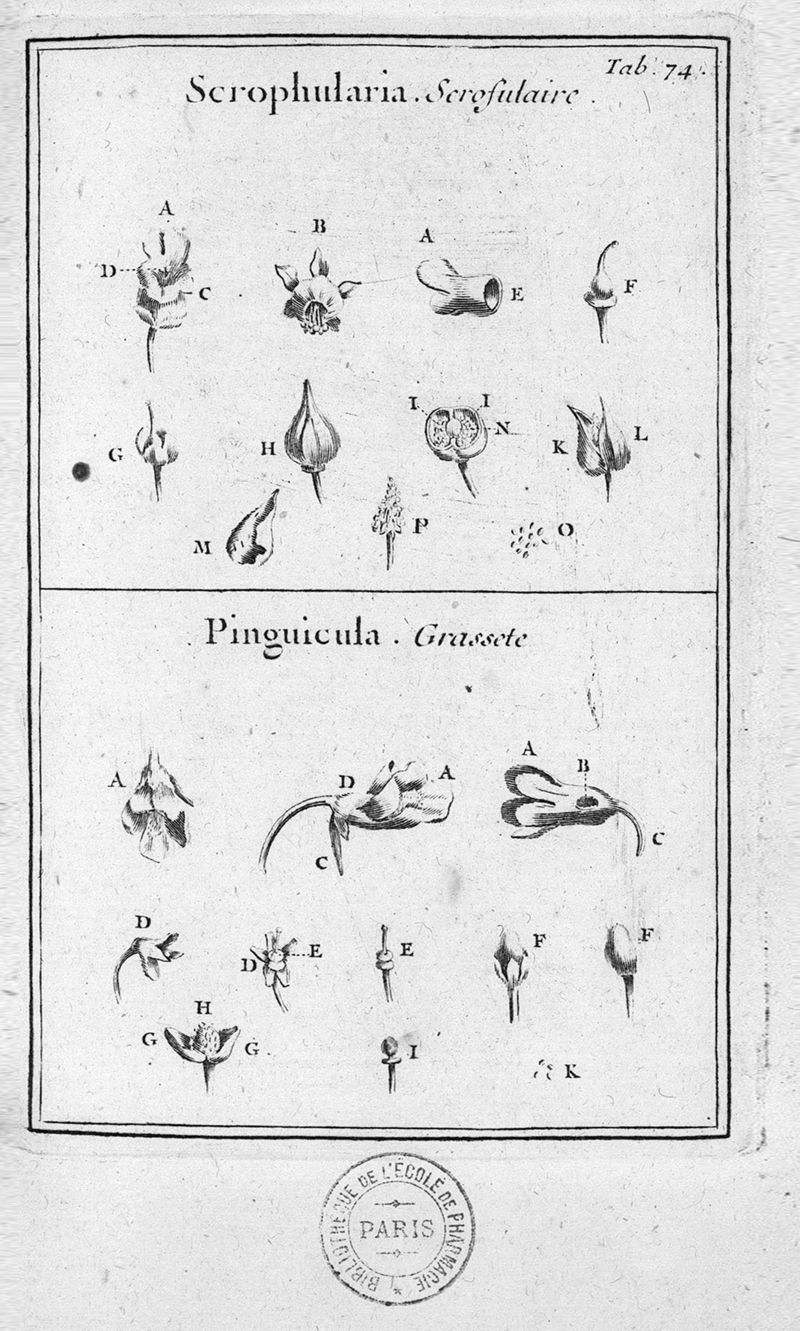 Tab. 74.
Scrophularia. Scrofulaire.
A
B
A
D
C
E
F
I I
G
H
N
K
L
M
P
O
Pinguicula. Grassete
A
D
A
A
B
C
C
D
D
E
E
F
F
H
G
G
I
K
BIBLIOTHÈQUE DE L'ÉCOLE DE PHARMACIE
PARIS